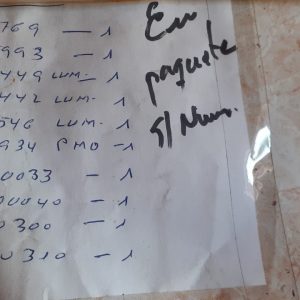 769 — 1
993 — 1
449 LUM. — 1
442 LUM. — 1
546 LUM. — 1
934 PMD — 1
00033 — 1
00040 — 1
0300 — 1
0310 — 1
En
paquete
S/Num.